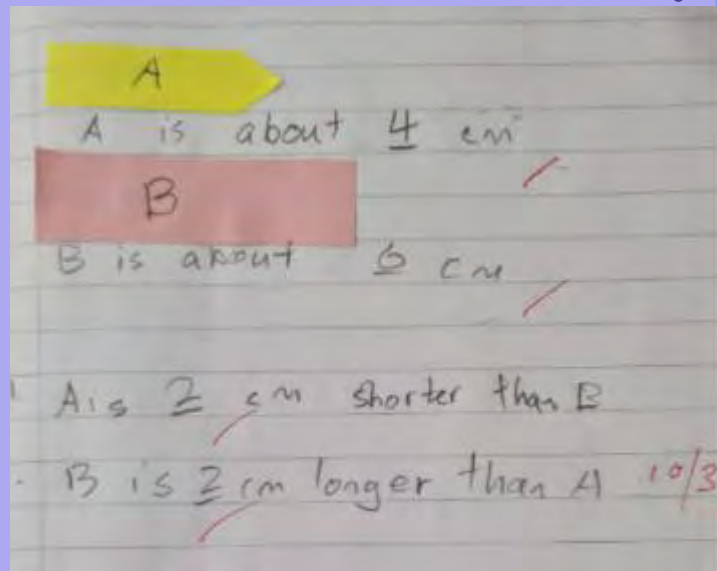 A
A is about 4 cm
B
B is about 6 cm
A is 2 cm shorter than B
B is 2 cm longer than A 10/3